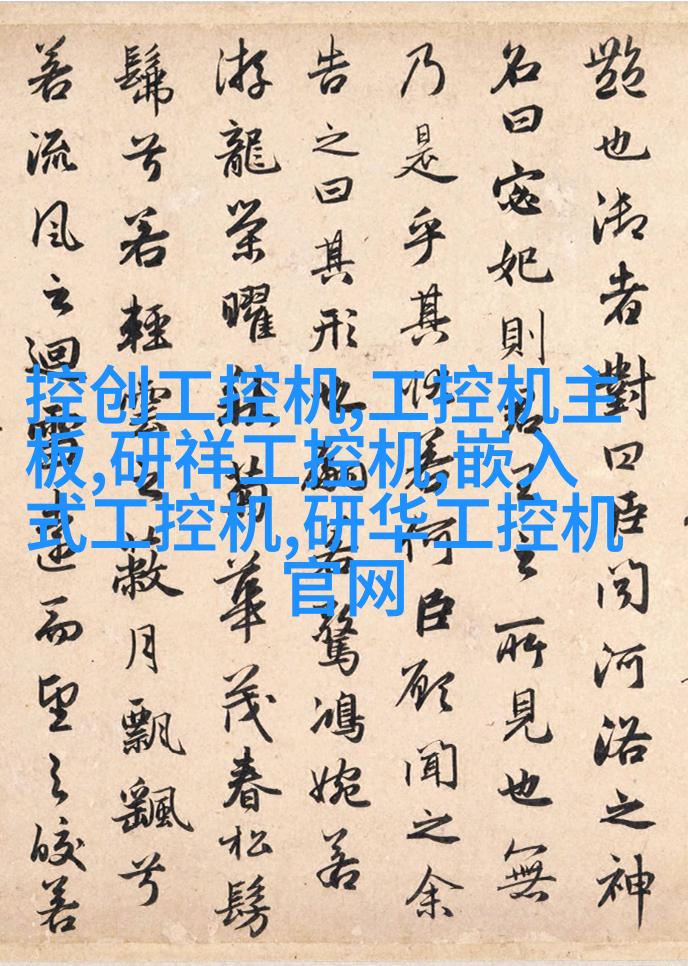 艷也御者對曰臣聞河洛之神
名曰宓妃則君王之所見也無
乃是乎其狀若何臣願聞之余
告之曰其形也翩若驚鴻婉若
游龍榮曜秋菊華茂春松髣
髴兮若輕雲之蔽月飄飖兮
若流風之迴雪遠而望之皎若
控创工控机,工控机主
板,研祥工控机,嵌入
式工控机,研华工控机
官网